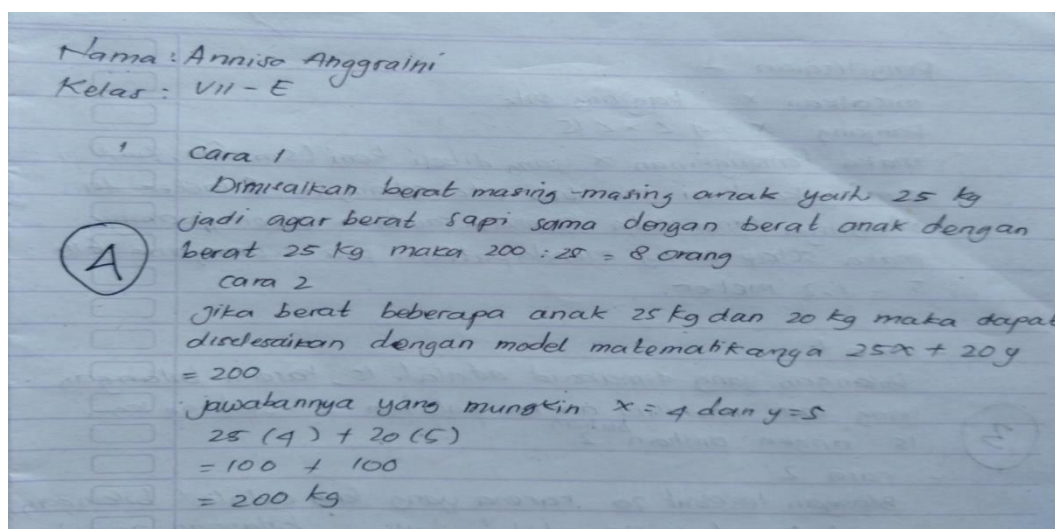 Nama : Anniso Anggraini
Kelas : VII - E
1 Cara 1
Dimisalkan berat masing-masing anak yaitu 25 kg
jadi agar berat sapi sama dengan berat anak dengan
A berat 25 kg maka 200 : 25 = 8 orang
cara 2
Jika berat beberapa anak 25 kg dan 20 kg maka dapat
diselesaikan dengan model matematikanya 25x + 20y
= 200
jawabannya yang mungkin x = 4 dan y = 5
25 (4) + 20 (5)
= 100 + 100
= 200 kg